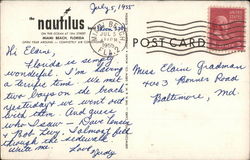 July 5, 1955
the nautilus
ON THE OCEAN AT 18th STREET
MIAMI BEACH, FLORIDA
OPEN YEAR AROUND — COMPLETELY AIR
MIAMI BEACH
JUL 5
1955
FLA.
POST CARD
Hi Elaine,
Florida is simply
wonderful. I'm having
a terrific time. We met
two boys on the beach
yesterday & we went out
with them. And guess
who I saw -
Bob Levy. I almost fell
through the sidewalk
write me. Love,
Judy
Miss Elaine Gradman
4103 Bonner Road
Baltimore, Md.